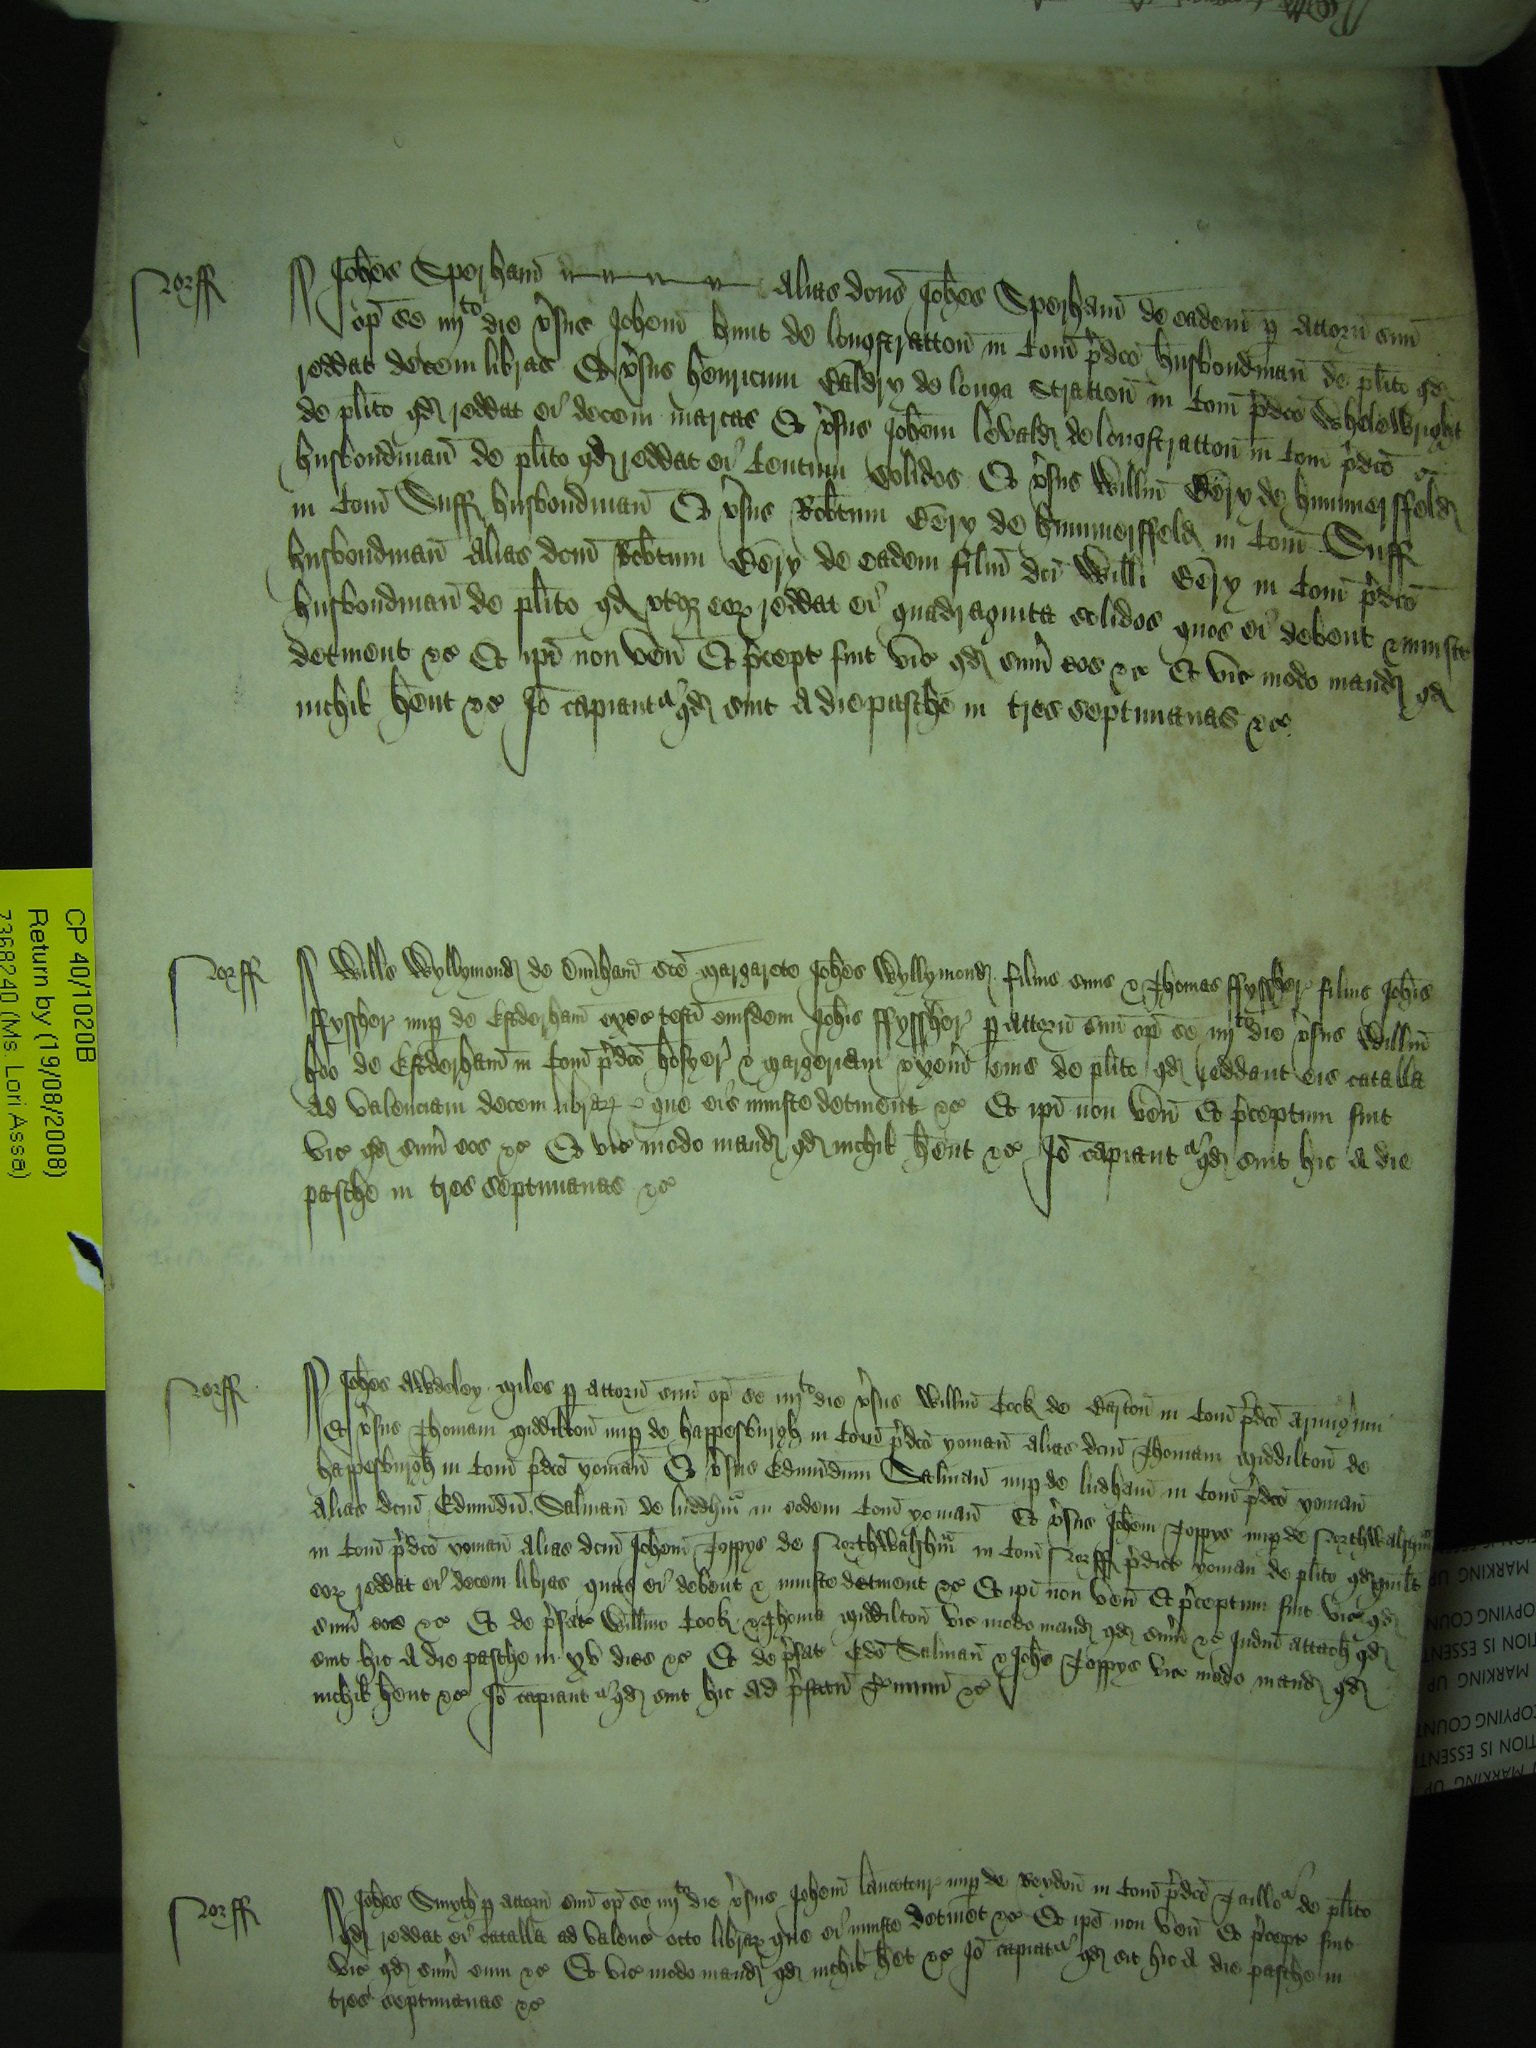 Norff
Johes Sperham alias dcus Johes Sperham de eadem p attorn suu
op se iiijto die vsus Johem hunt de longstratton in Com pdco husbondman de plito qd
reddat decem libras Et vsus henricum Baldry de longa Stratton in Com pdco whelewright
de plito qd reddat ei decem marcas Et vsus Johem de longstratton in Com pdco
husbondman de plito qd reddat ei Centum solidos Et vsus Willm Bery de hummersffeld
in Com Suff husbondman Et vsus Robtum Bery de hummersffeld in Com Suff
husbondman alias dcm Robtum Bery de eadem filiu dci Willi Bery in Com pdco
husbondman de plito qd utq eor reddat ei quadraginta solidos quos ei debent & iniuste
detinent &c Et ipi non ven Et pcept fuit vic qd sum eos &c Et vic modo mand qd
nichil hent &c Io capiant qd sint a die pasche in tres septimanas &c
Norff
Wills Wyllymond de Dunham sce Margarete Johes Wyllymond filius suus & Thomas ffyssher filius Johis
ffyssher nup de Estderham exec testi eiusdem Johis ffyssher p attorn suu op se iiijto die vsus Willm
hoo de Estderham in Com pdco hosyer & Margeriam uxem eius de plito qd reddant eis catalla
ad valenciam decem librar que eis iniuste detinent &c Et ipi non ven Et pceptum fuit
vic qd sum eos &c Et vic modo mand qd nichil hent &c Io capiant qd sint hic a die
pasche in tres septimanas &c
Norff
Johes Awdeley Miles p attorn suu op se iiijto die vsus Willm Cook de Barton in Com pdco armigum
Et vsus Thomam Middilton nup de happesburgh in Com pdco yoman alias dcm Thomam Middilton de
happesburgh in Com pdco yoman Et vsus Edmundum Salman nup de ludham in Com pdco yoman
alias dcm Edmundu Salman de luddham in eodem Com yoman Et vsus Johem Joppys nup de Northwalsham
in Com pdco yoman alias dcm Johem Joppys de Northwalsham in Com Norff pdict yoman de plito qd quilt
eor reddat ei decem libras quas ei debent & iniuste detinent &c Et ipi non ven Et pceptum fuit vic qd
sum eos &c Et de pfat Willmo Cook & Thoma Middilton vic modo mand qd sum &c Iudm attach qd
sint hic a die pasche in xv dies &c Et de pfat Edo Salman & Johe Joppys vic modo mand qd
nichil hent &c Io capiant qd sint hic ad pfatu Tminu &c
Norff
Johes Smyth p attorn suu op se iiijto die vsus Johem nup de Reydon in Com pdco Taillo de plito
qd reddat ei catalla ad valenc octo librar que ei iniuste detinet &c Et ipe non ven Et pcept fuit
vic qd sum eum &c Et vic modo mand qd nichil het &c Io capiat qd sit hic a die pasche in
tres septimanas &c
CP 40/1020B
Return by (19/08/2008)
7368240 (Ms. Lori Assa)
MARKING UP
COPYING COUNT
TION IS ESSENTI
MARKING UP
COPYING COUNT
TION IS ESSENTI
MARKING UP